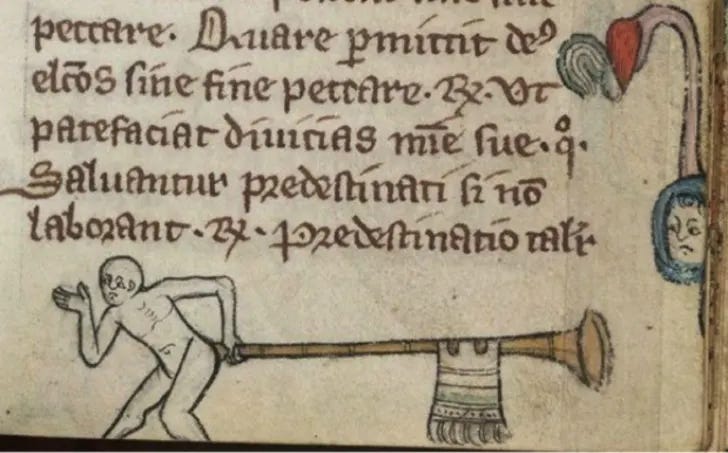 peccare. Quare ꝑmittit deꝰ
elc̄os sine fine peccare. ℞. Vt
patefaciat diuicias mīe sue. qͦ.
Saluantur predestinati si nō
laborant. ℞. Predestinatio